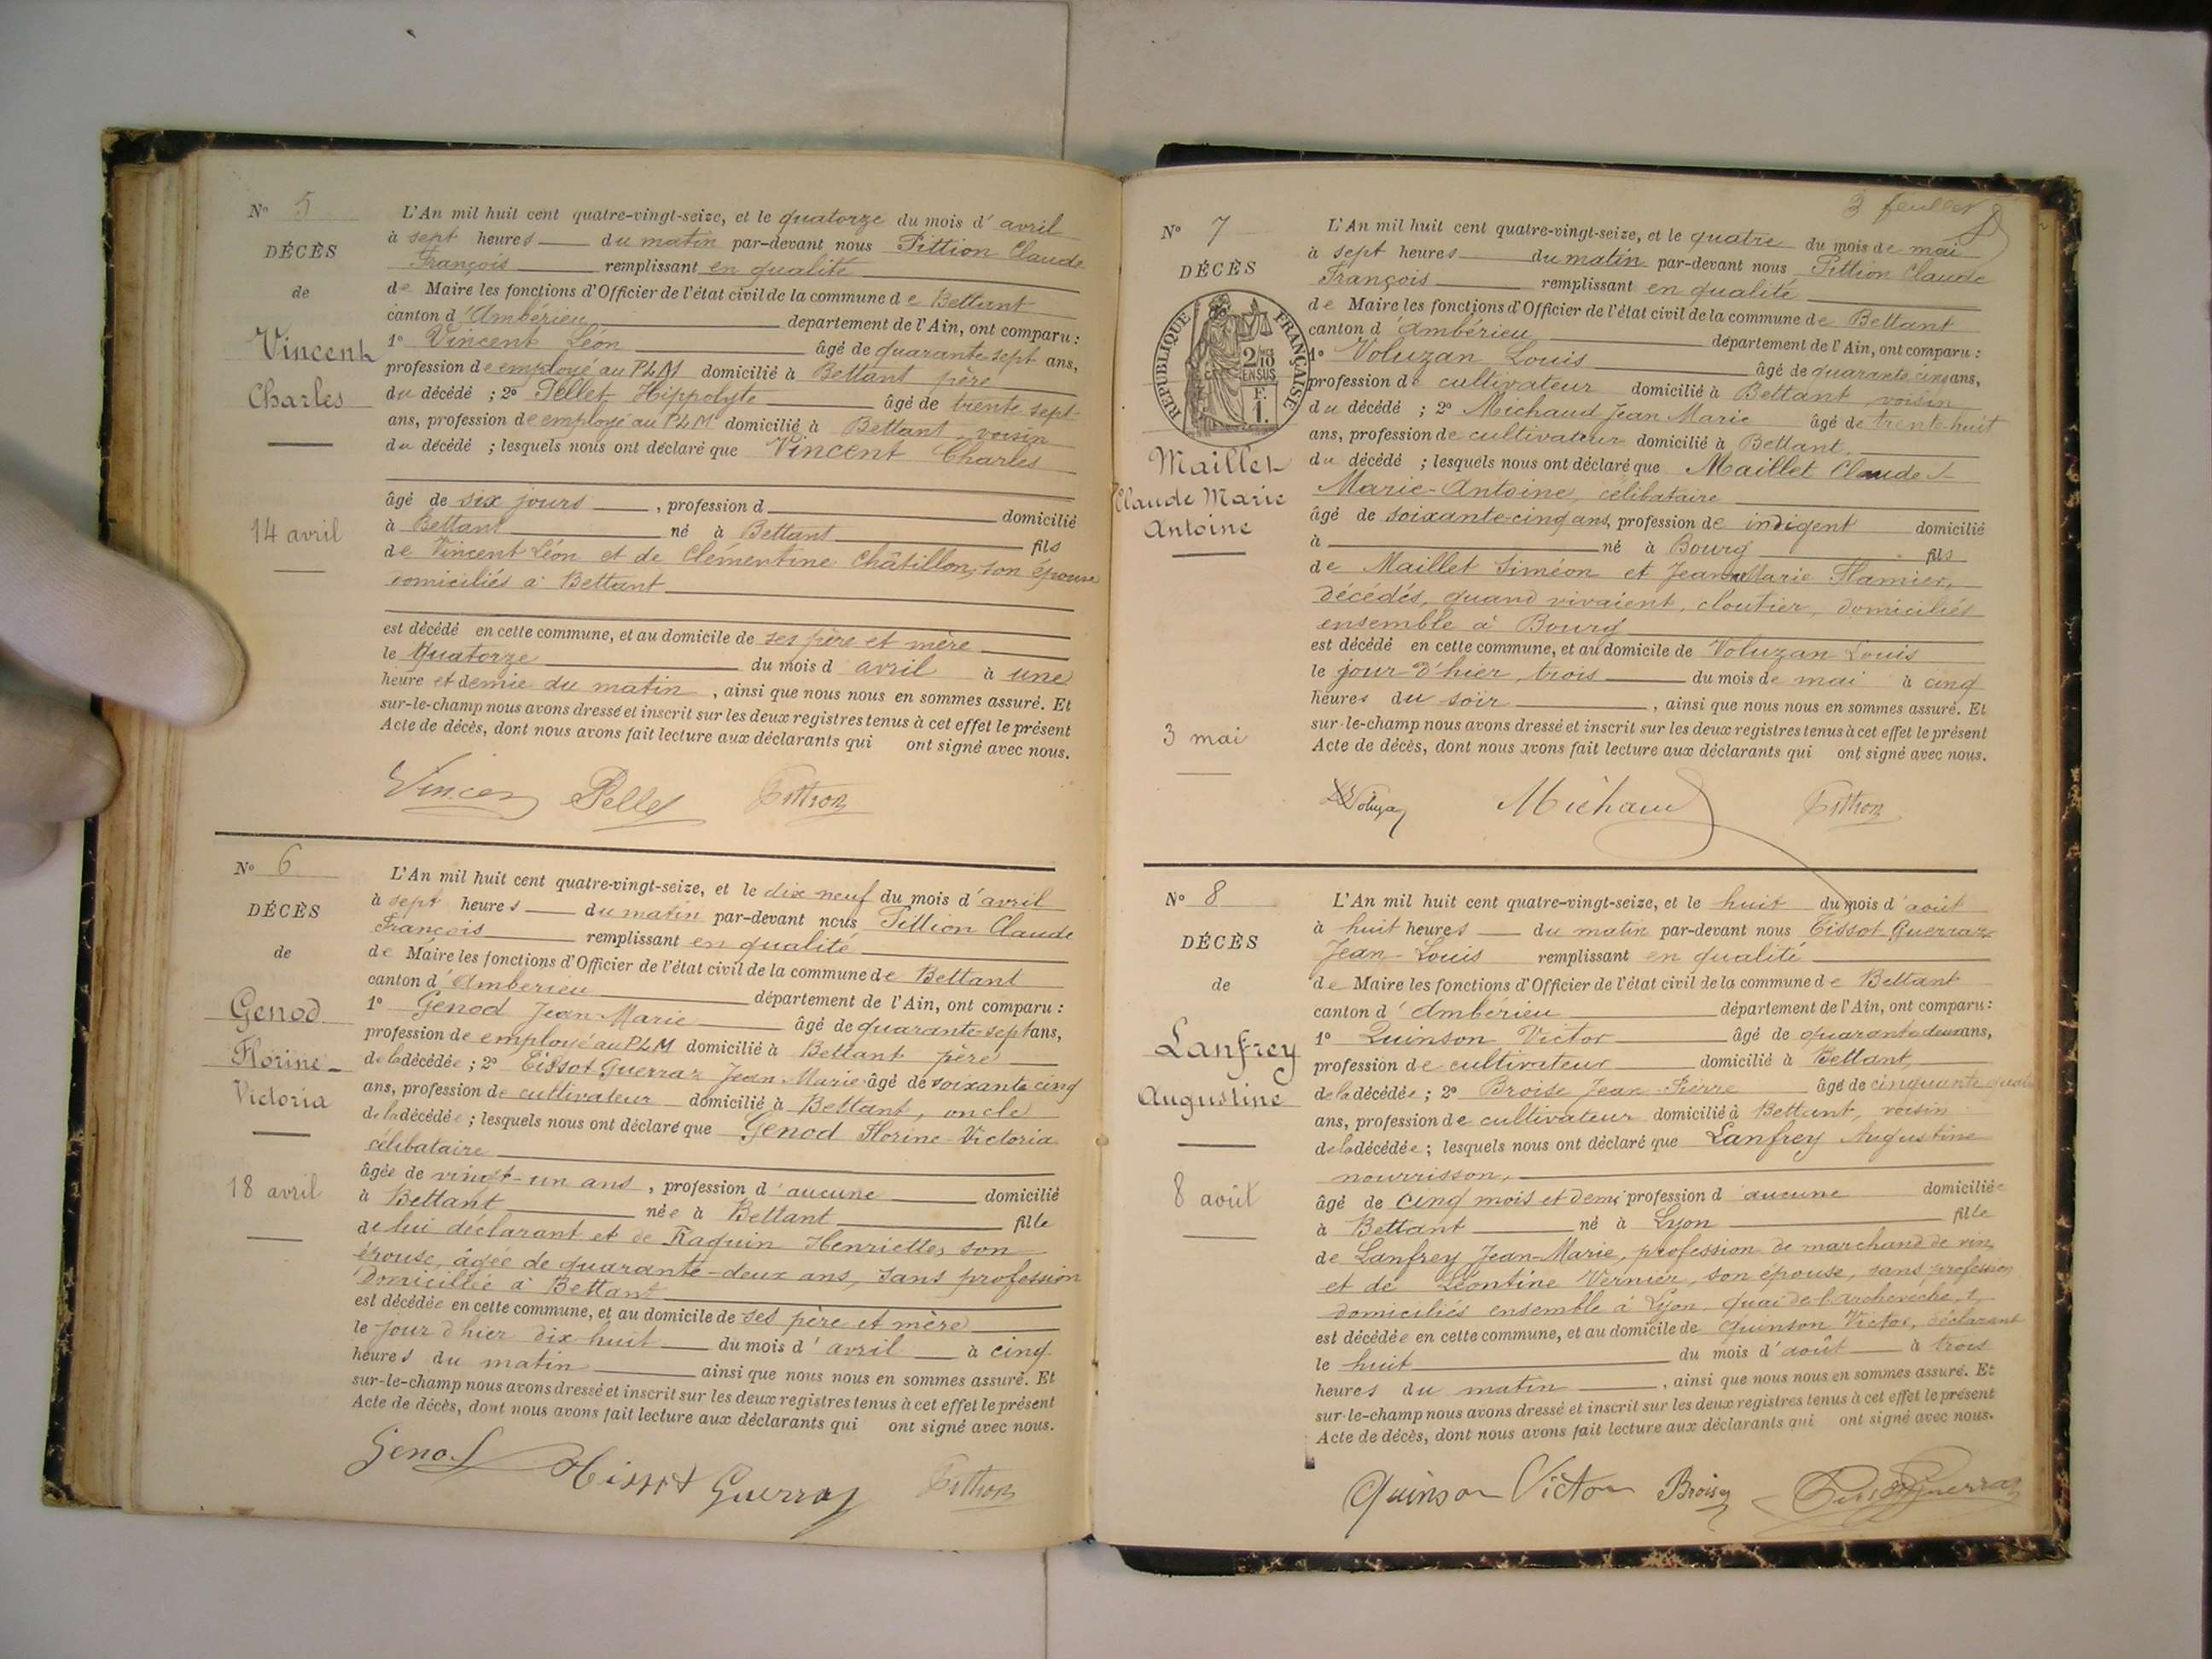 N° 5
DÉCÈS
de
Vincent
Charles
14 avril
L'An mil huit cent quatre-vingt-seize, et le quatorze du mois d'avril
à sept heures du matin par-devant nous Pittion Claude
François remplissant en qualité
de Maire les fonctions d'Officier de l'état civil de la commune de Bettant
canton d'Ambérieu département de l'Ain, ont comparu :
1° Vincent Léon âgé de quarante-sept ans,
profession de employé au PLM domicilié à Bettant père
du décédé ; 2° Pellet Hippolyte âgé de trente sept
ans, profession de employé au PLM domicilié à Bettant voisin
du décédé ; lesquels nous ont déclaré que Vincent Charles
âgé de six jours , profession d domicilié
à Bettant né à Bettant fils
de Vincent Léon et de Clémentine Châtillon, son épouse
domiciliés à Bettant
est décédé en cette commune, et au domicile de ses père et mère
le quatorze du mois d avril à une
heure et demie du matin , ainsi que nous nous en sommes assuré. Et
sur-le-champ nous avons dressé et inscrit sur les deux registres tenus à cet effet le présent
Acte de décès, dont nous avons fait lecture aux déclarants qui ont signé avec nous.
Vincen Pellet Pittion
N° 6
DÉCÈS
de
Genod
Florine-
Victoria
18 avril
L'An mil huit cent quatre-vingt-seize, et le dix neuf du mois d'avril
à sept heures du matin par-devant nous Pittion Claude
François remplissant en qualité
de Maire les fonctions d'Officier de l'état civil de la commune de Bettant
canton d'Ambérieu département de l'Ain, ont comparu :
1° Genod Jean-Marie âgé de quarante-sept ans,
profession de employé au PLM domicilié à Bettant père
de la décédée ; 2° Tissot Guerraz Jean-Marie âgé de soixante cinq
ans, profession de cultivateur domicilié à Bettant, oncle
de la décédée ; lesquels nous ont déclaré que Genod Florine-Victoria
célibataire
âgée de vingt-un ans , profession d'aucune domicilié
à Bettant née à Bettant fille
de lui déclarant et de Raquin Henriette, son
épouse, âgée de quarante-deux ans, sans profession
domiciliée à Bettant
est décédée en cette commune, et au domicile de ses père et mère
le jour d'hier dix-huit du mois d'avril à cinq
heures du matin ainsi que nous nous en sommes assuré. Et
sur-le-champ nous avons dressé et inscrit sur les deux registres tenus à cet effet le présent
Acte de décès, dont nous avons fait lecture aux déclarants qui ont signé avec nous.
Genod Tissot Guerraz Pittion
3 feuillet
N° 7
DÉCÈS
RÉPUBLIQUE FRANÇAISE
2/10 EN SUS
F. 1.
Maillet
Claude Marie
Antoine
3 mai
L'An mil huit cent quatre-vingt-seize, et le quatre du mois de mai
à sept heures du matin par-devant nous Pittion Claude
François remplissant en qualité
de Maire les fonctions d'Officier de l'état civil de la commune de Bettant
canton d'Ambérieu département de l'Ain, ont comparu :
1° Voluzan Louis âgé de quarante cinq ans,
profession de cultivateur domicilié à Bettant voisin
du décédé ; 2° Michaud Jean Marie âgé de trente-huit
ans, profession de cultivateur domicilié à Bettant
du décédé ; lesquels nous ont déclaré que Maillet Claude
Marie-Antoine, célibataire
âgé de soixante-cinq ans, profession de indigent domicilié
à né à Bourg fils
de Maillet Siméon et Jeanne Marie Flamier,
décédés, quand vivaient, cloutier, domiciliés
ensemble à Bourg
est décédé en cette commune, et au domicile de Voluzan Louis
le jour d'hier, trois du mois de mai à cinq
heures du soir , ainsi que nous nous en sommes assuré. Et
sur-le-champ nous avons dressé et inscrit sur les deux registres tenus à cet effet le présent
Acte de décès, dont nous avons fait lecture aux déclarants qui ont signé avec nous.
Michaud Pittion
N° 8
DÉCÈS
de
Lanfrey
Augustine
8 août
L'An mil huit cent quatre-vingt-seize, et le huit du mois d'août
à huit heures du matin par-devant nous Tissot Guerraz
Jean-Louis remplissant en qualité
de Maire les fonctions d'Officier de l'état civil de la commune de Bettant
canton d'Ambérieu département de l'Ain, ont comparu :
1° Quinson Victor âgé de quarante deux ans,
profession de cultivateur domicilié à Bettant,
de la décédée ; 2° Broise Jean-Pierre âgé de cinquante quatre
ans, profession de cultivateur domicilié à Bettant, voisin
de la décédée ; lesquels nous ont déclaré que Lanfrey Augustine
nourrisson,
âgé de cinq mois et demi profession d'aucune domiciliée
à Bettant né à Lyon fille
de Lanfrey Jean-Marie, profession de marchand de vin,
et de Léontine Vernier, son épouse, sans profession
domiciliés ensemble à Lyon, quai de l'archevêché, 1,
est décédée en cette commune, et au domicile de Quinson Victor, déclarant
le huit du mois d'août à trois
heures du matin , ainsi que nous nous en sommes assuré. Et
sur-le-champ nous avons dressé et inscrit sur les deux registres tenus à cet effet le présent
Acte de décès, dont nous avons fait lecture aux déclarants qui ont signé avec nous.
Quinson Victor Broise Tissot Guerraz